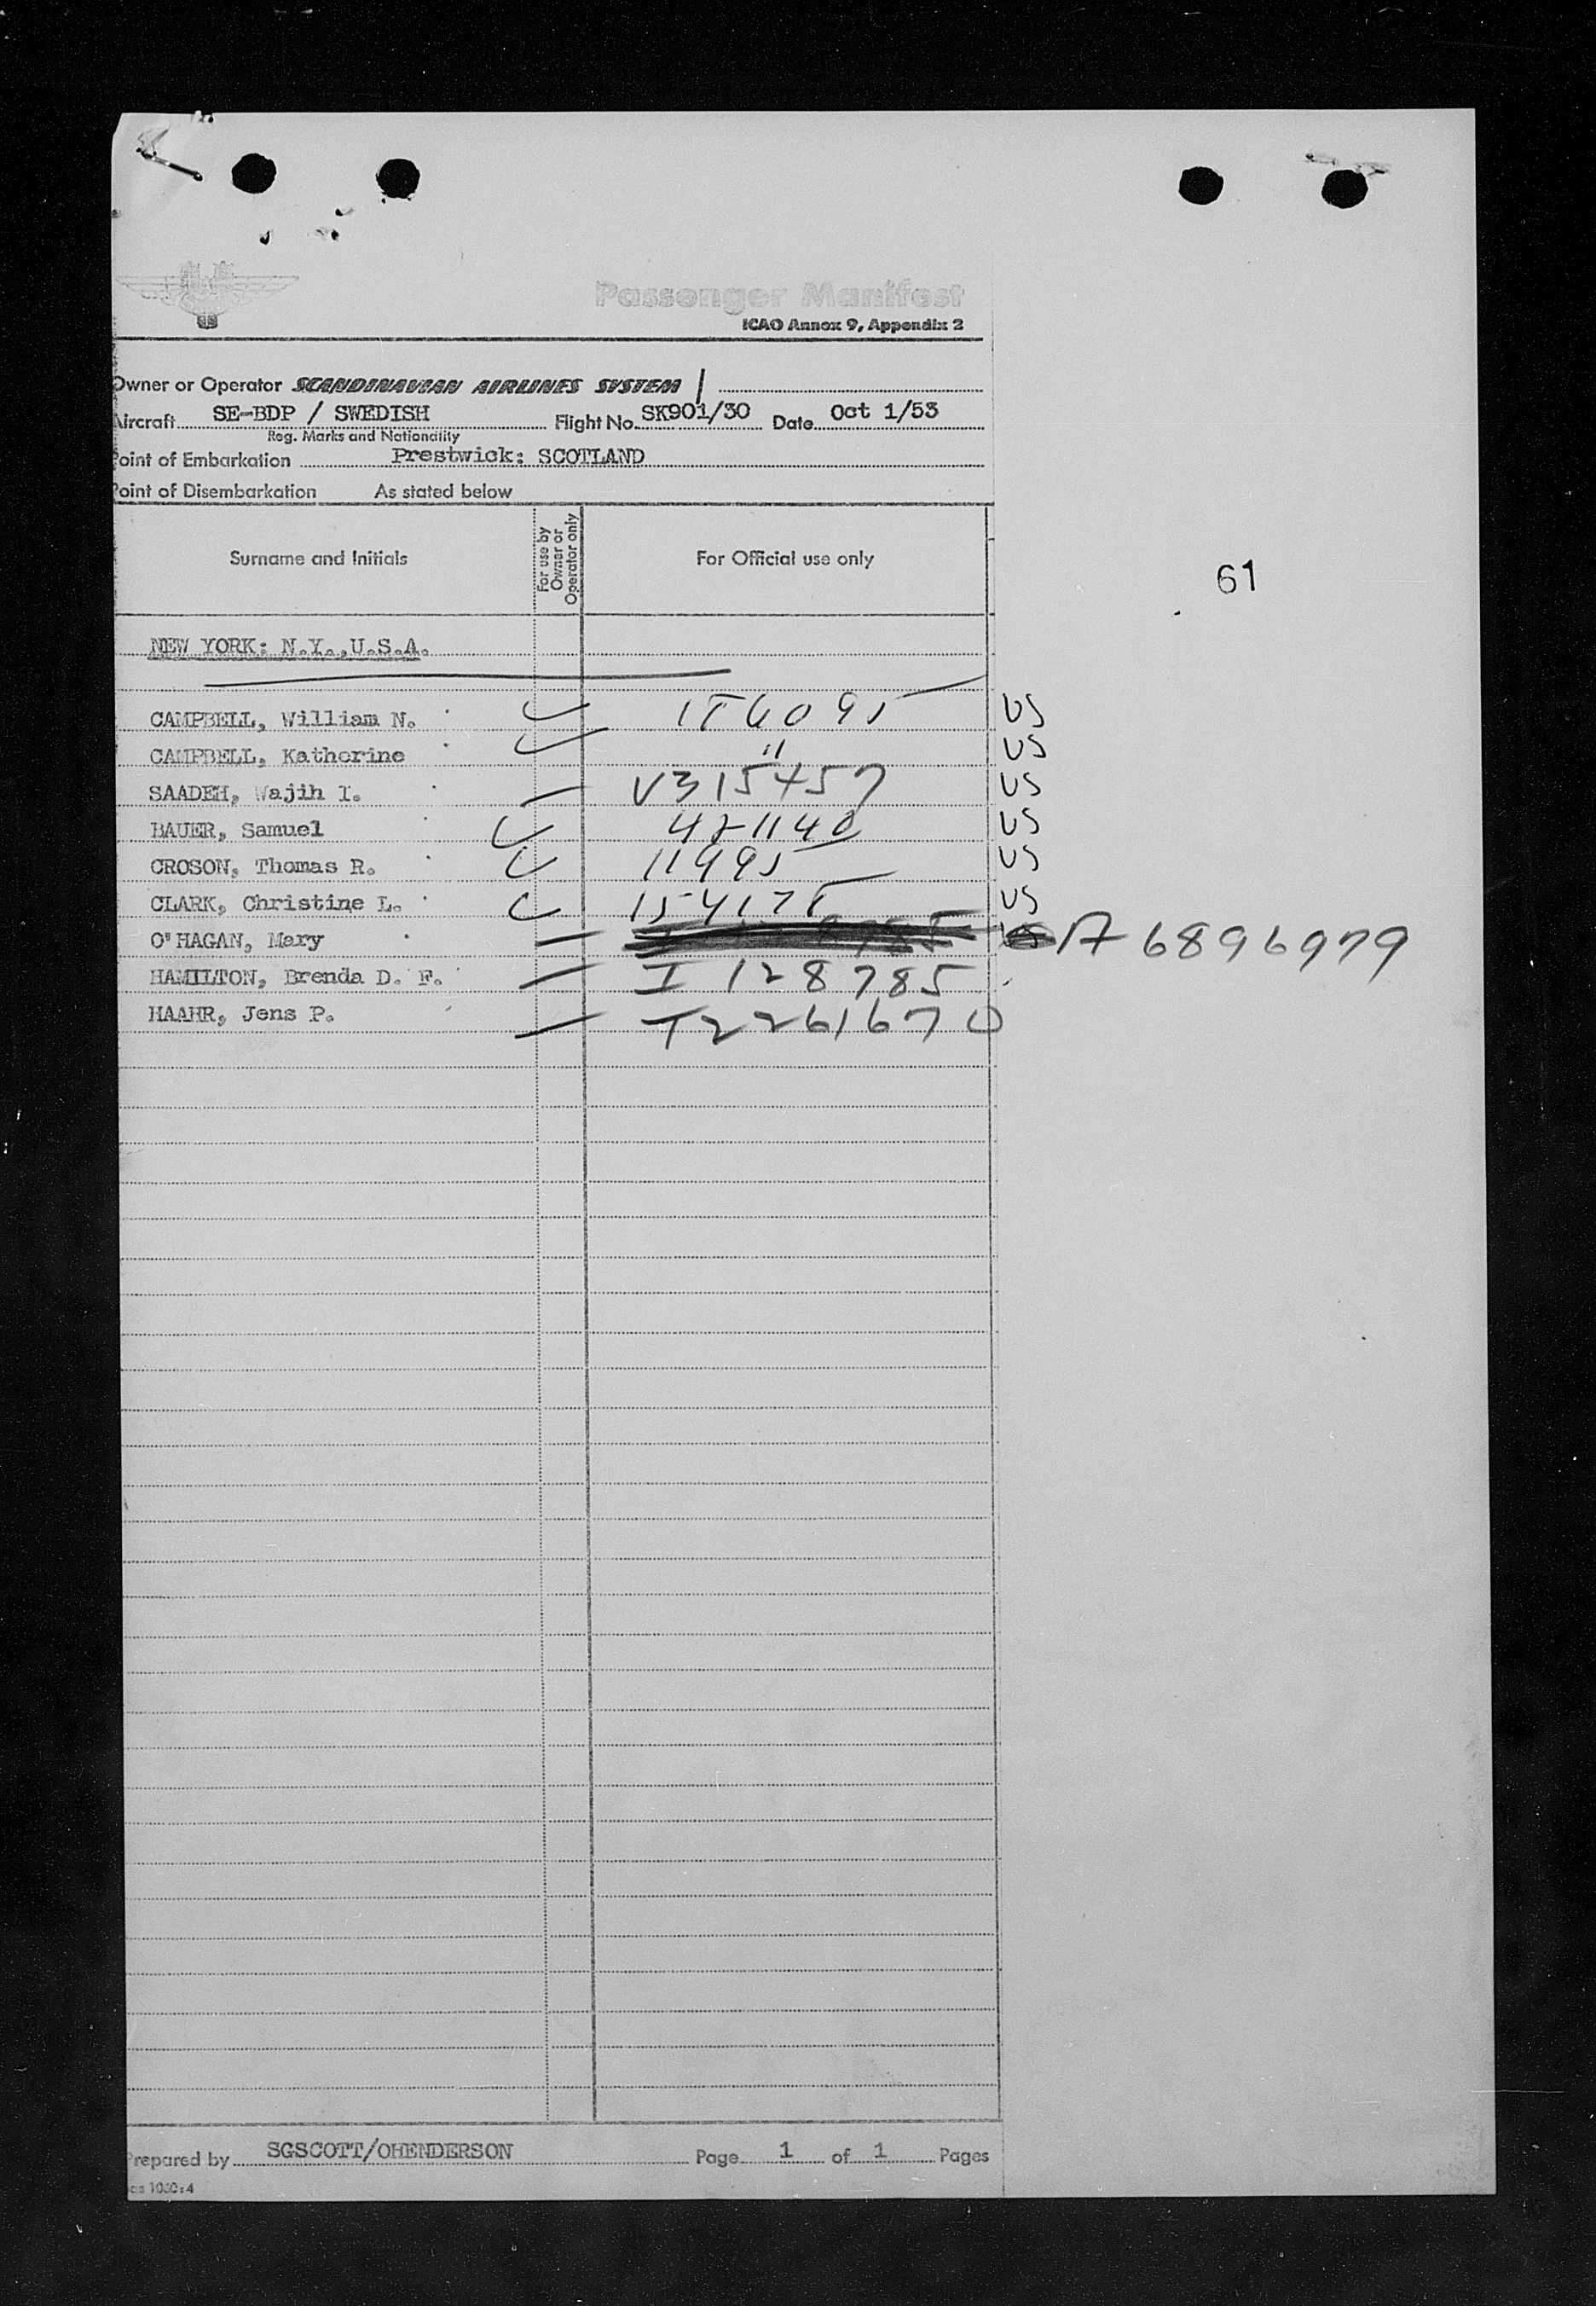 Passenger Manifest
ICAO Annex 9, Appendix 2
Owner or Operator SCANDINAVIAN AIRLINES SYSTEM
Aircraft SE-BDP / SWEDISH Flight No. SK901/30 Date Oct 1/53
Reg. Marks and Nationality
Point of Embarkation Prestwick: SCOTLAND
Point of Disembarkation As stated below
Surname and Initials For use by Owner or Operator only For Official use only
61
NEW YORK: N.Y.,U.S.A.
CAMPBELL, William N. US
CAMPBELL, Katherine " US
SAADEH, Wajih I. V315457 US
BAUER, Samuel US
CROSON, Thomas R. 11995 US
CLARK, Christine L. US
O'HAGAN, Mary A 6896979
HAMILTON, Brenda D. F. I 128785
HAAHR, Jens P. T2261670
Prepared by SGSCOTT/OHENDERSON Page 1 of 1 Pages
1030:4